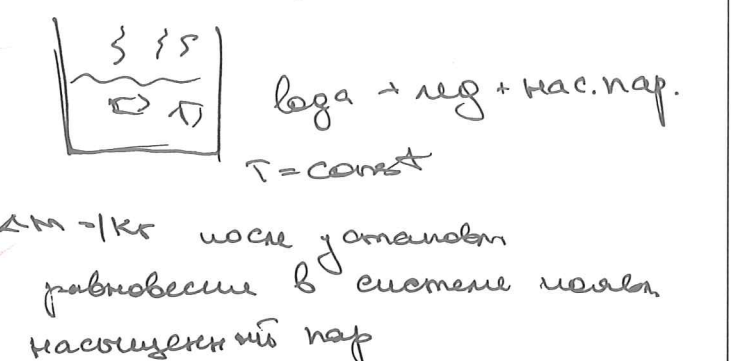 вода + лед + нас. пар.
T = const
ΔM = 1кг после установл
равновесие в системе появл.
насыщенный пар